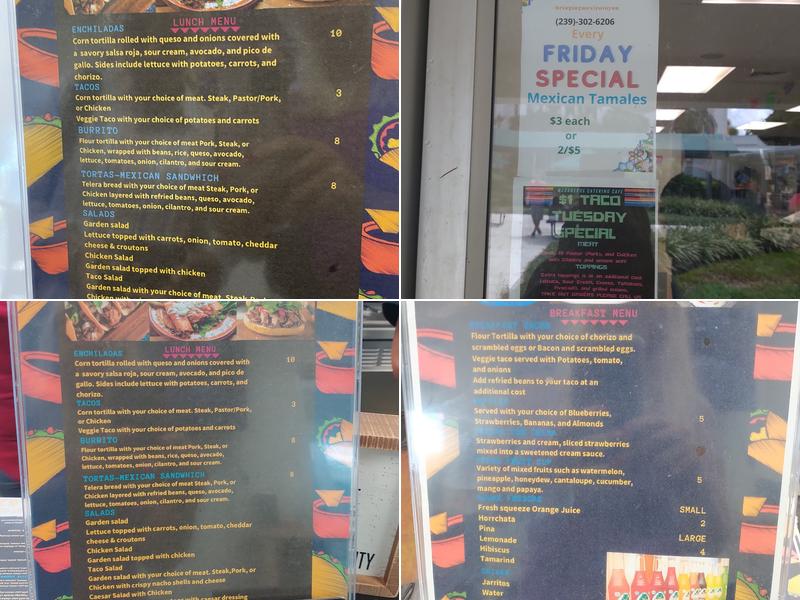 LUNCH MENU
ENCHILADAS
Corn tortilla rolled with queso and onions covered with 10
a savory salsa roja, sour cream, avocado, and pico de
gallo. Sides include lettuce with potatoes, carrots, and
chorizo.
TACOS
Corn tortilla with your choice of meat. Steak, Pastor/Pork, 3
or Chicken
Veggie Taco with your choice of potatoes and carrots
BURRITO
Flour tortilla with your choice of meat Pork, Steak, or 8
Chicken, wrapped with beans, rice, queso, avocado,
lettuce, tomatoes, onion, cilantro, and sour cream.
TORTAS-MEXICAN SANDWHICH
Telera bread with your choice of meat Steak, Pork, or 8
Chicken layered with refried beans, queso, avocado,
lettuce, tomatoes, onion, cilantro, and sour cream.
SALADS
Garden salad
Lettuce topped with carrots, onion, tomato, cheddar
cheese & croutons
Chicken Salad
Garden salad topped with chicken
Taco Salad
Garden salad with your choice of meat. Steak, Pork, or
Chicken with
(239)-302-6206
Every
FRIDAY
SPECIAL
Mexican Tamales
$3 each
or
2/$5
CATERING CAFE
$1 TACO
TUESDAY
SPECIAL
MEAT
TOPPINGS
LUNCH MENU
ENCHILADAS
Corn tortilla rolled with queso and onions covered with 10
a savory salsa roja, sour cream, avocado, and pico de
gallo. Sides include lettuce with potatoes, carrots, and
chorizo.
TACOS
Corn tortilla with your choice of meat. Steak, Pastor/Pork, 3
or Chicken
Veggie Taco with your choice of potatoes and carrots
BURRITO
Flour tortilla with your choice of meat Pork, Steak, or 8
Chicken, wrapped with beans, rice, queso, avocado,
lettuce, tomatoes, onion, cilantro, and sour cream.
TORTAS-MEXICAN SANDWHICH
Telera bread with your choice of meat Steak, Pork, or 8
Chicken layered with refried beans, queso, avocado,
lettuce, tomatoes, onion, cilantro, and sour cream.
SALADS
Garden salad
Lettuce topped with carrots, onion, tomato, cheddar
cheese & croutons
Chicken Salad
Garden salad topped with chicken
Taco Salad
Garden salad with your choice of meat. Steak,Pork, or
Chicken with crispy nacho shells and cheese
Caesar Salad with Chicken
with caesar dressing
BREAKFAST MENU
BREAKFAST TACOS
Flour Tortilla with your choice of chorizo and
scrambled eggs or Bacon and scrambled eggs.
Veggie taco served with Potatoes, tomato,
and onions
Add refried beans to your taco at an
additional cost
Served with your choice of Blueberries, 5
Strawberries, Bananas, and Almonds
Strawberries and cream, sliced strawberries
mixed into a sweetened cream sauce.
Variety of mixed fruits such as watermelon,
pineapple, honeydew, cantaloupe, cucumber, 5
mango and papaya.
Fresh squeeze Orange Juice SMALL
Horrchata 2
Pina
Lemonade LARGE
Hibiscus 4
Tamarind
Jarritos
Water